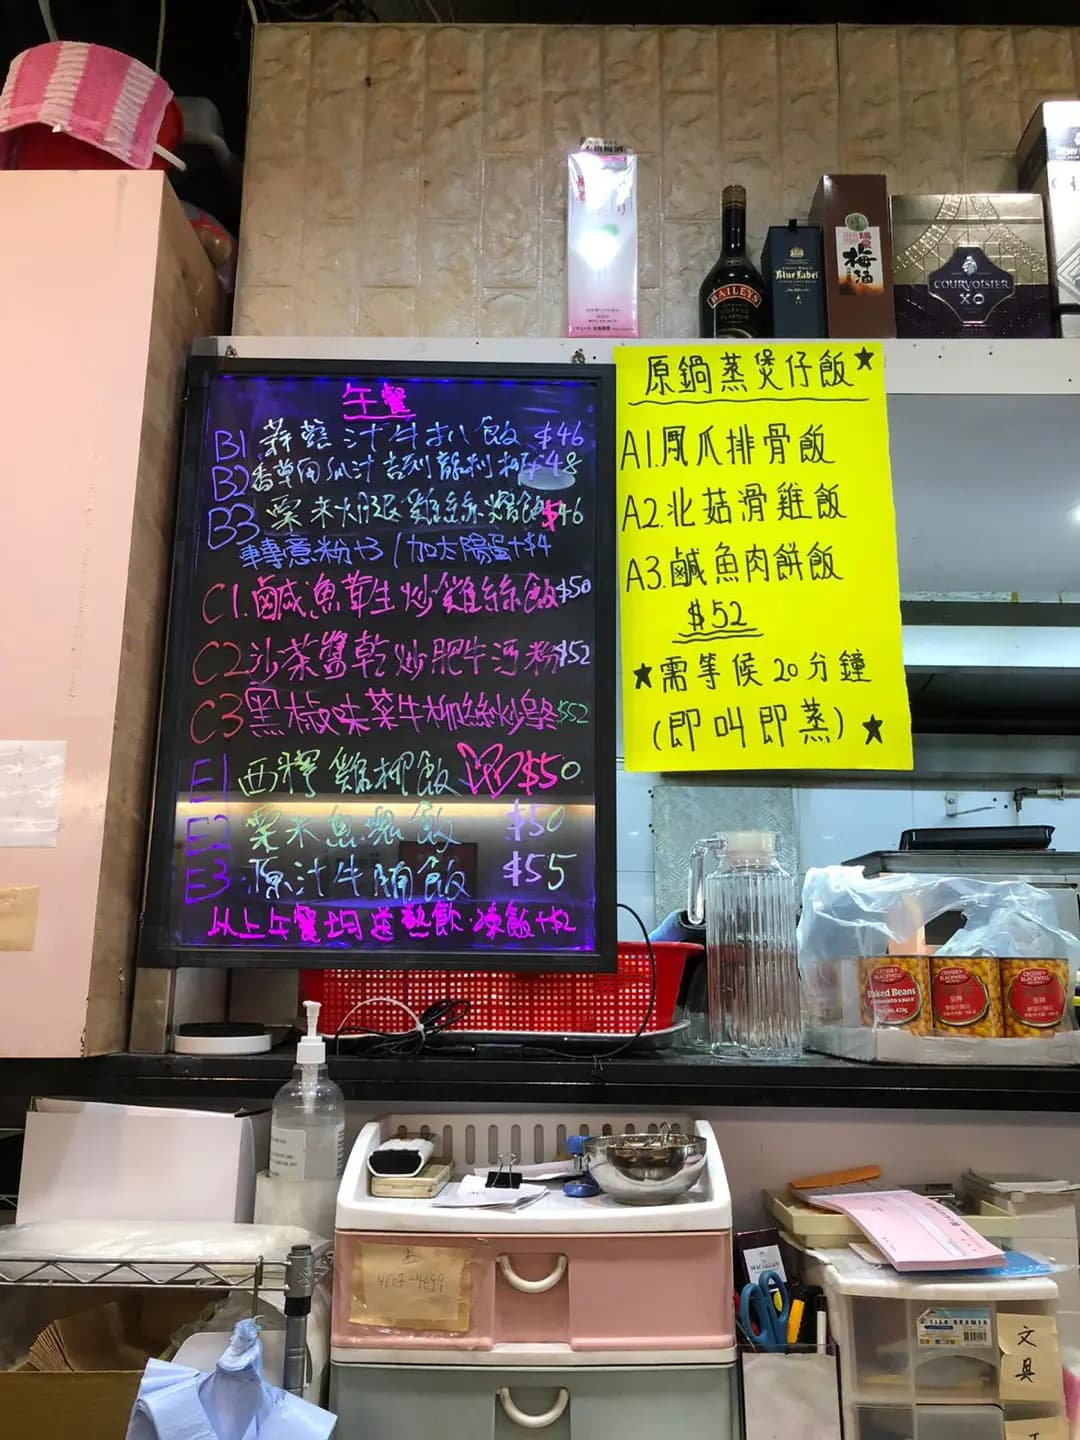 午餐
B1 蒜蓉汁牛扒飯 $46
B2 香草 汁吉列龍利柳 $48
B3 粟米火腿雞絲燴飯 $46
轉意粉+3 / 加太陽蛋+$4
C1. 鹹魚茸生炒雞絲飯 $50
C2 沙茶醬乾炒肥牛河粉 $52
C3 黑椒味菜牛柳絲炒 $52
E1 西檸雞柳飯 $50
E2 粟米魚塊飯 $50
E3 原汁牛腩飯 $55
以上午餐均送熱飲 凍飲+$2
原鍋蒸煲仔飯★
A1.鳳爪排骨飯
A2.北菇滑雞飯
A3.鹹魚肉餅飯
$52
★需等候20分鐘
(即叫即蒸)★
BAILEYS
Blue Label
梅酒
COURVOISIER
XO
CROSSE & BLACKWELL
Baked Beans
CROSSE & BLACKWELL
CROSSE & BLACKWELL
MACALLAN
文具